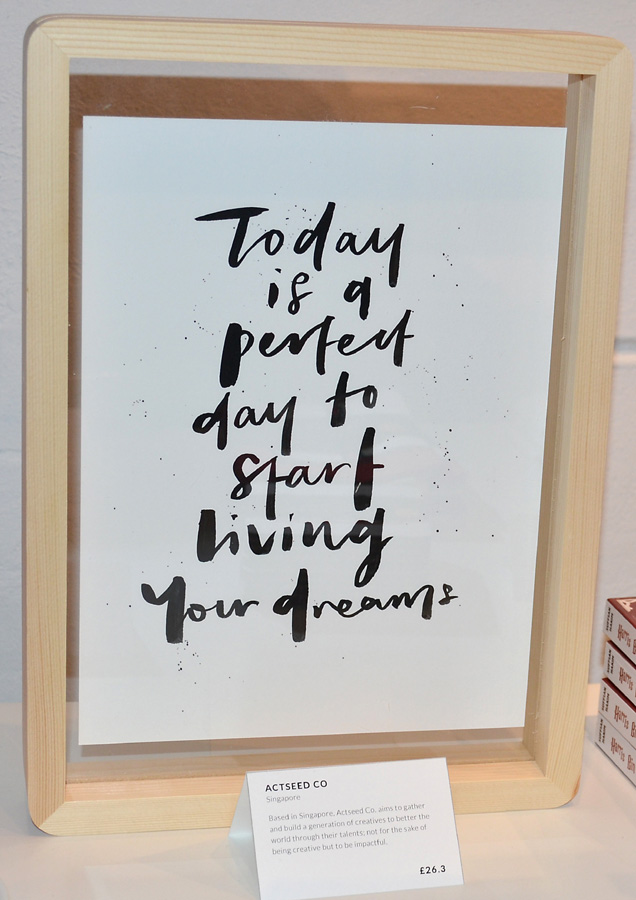 Today
is a
perfect
day to
start
living
your dreams
ACTSEED CO
Singapore
Based in Singapore, Actseed Co. aims to gather
and build a generation of creatives to better the
world through their talents; not for the sake of
being creative but to be impactful.
£26.3
Harris
Harris
Harris
Harris